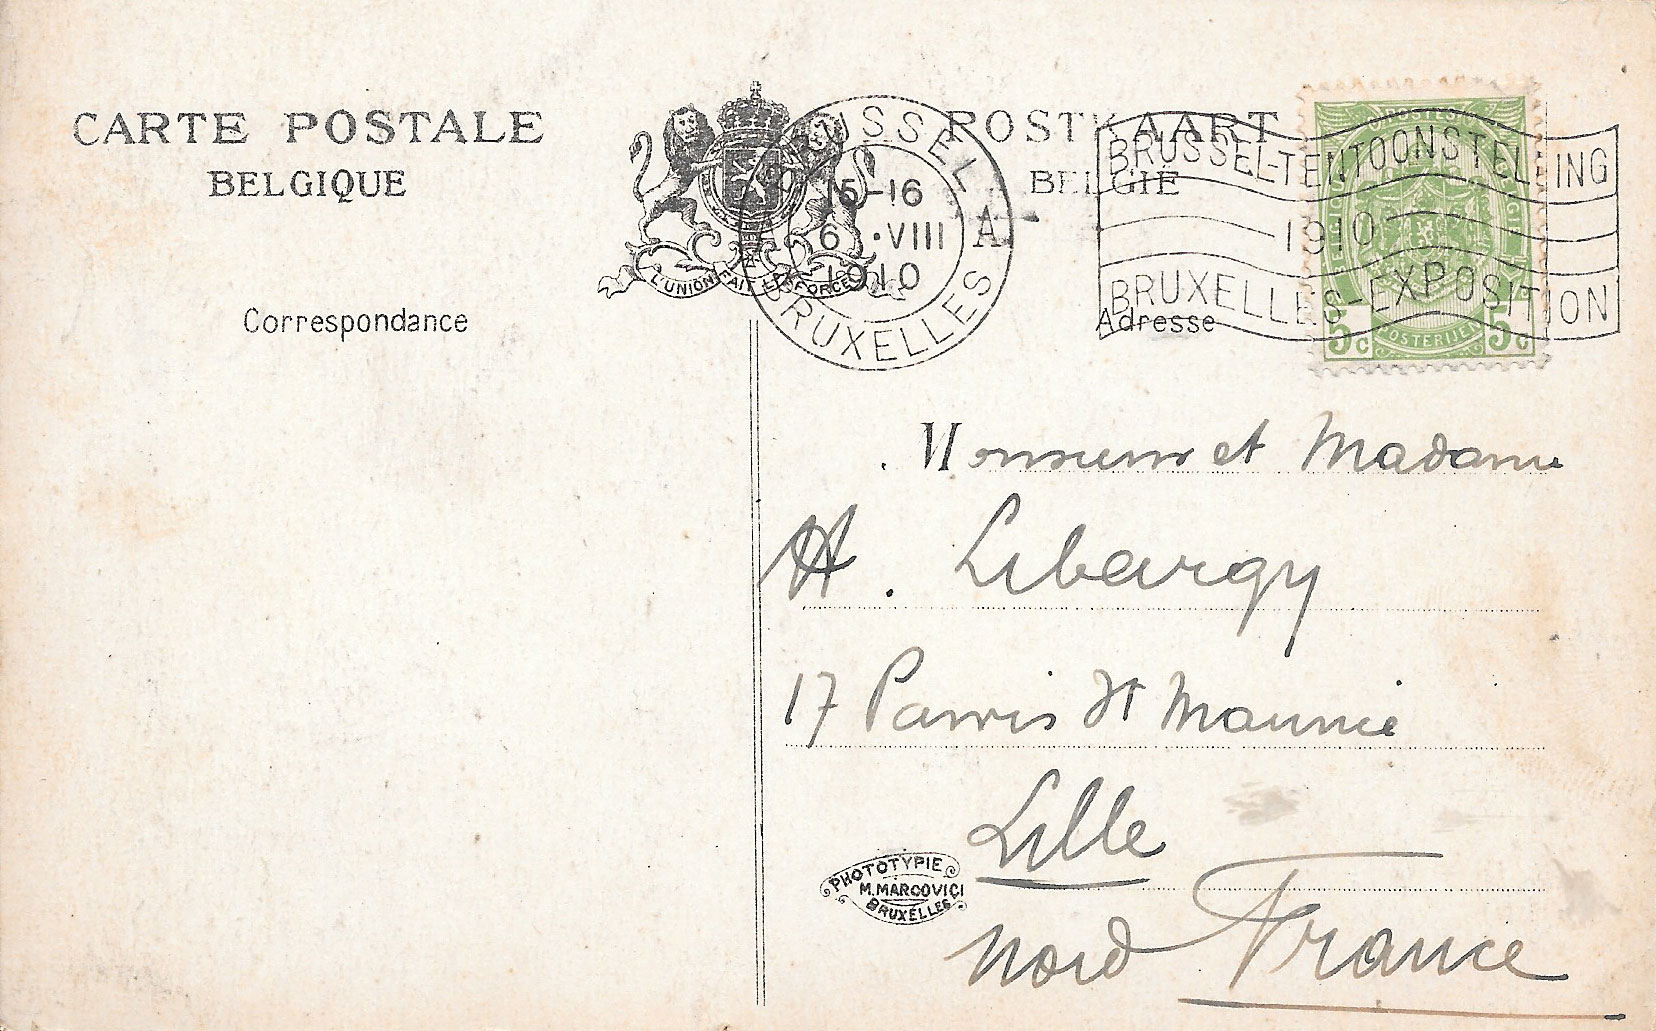 CARTE POSTALE
BELGIQUE
POSTKAART
BELGIË
L'UNION FAIT LA FORCE
BRUSSEL A
15-16
6 ·VIII
1910
BRUXELLES
BRUSSEL-TENTOONSTELLING
1910
BRUXELLES-EXPOSITION
5c 5c
POSTERIJEN
Correspondance
Adresse
Monsieur et Madame
H. Libargy
17 Parvis St Maurice
Lille
Nord France
PHOTOTYPIE
M. MARCOVICI
BRUXELLES